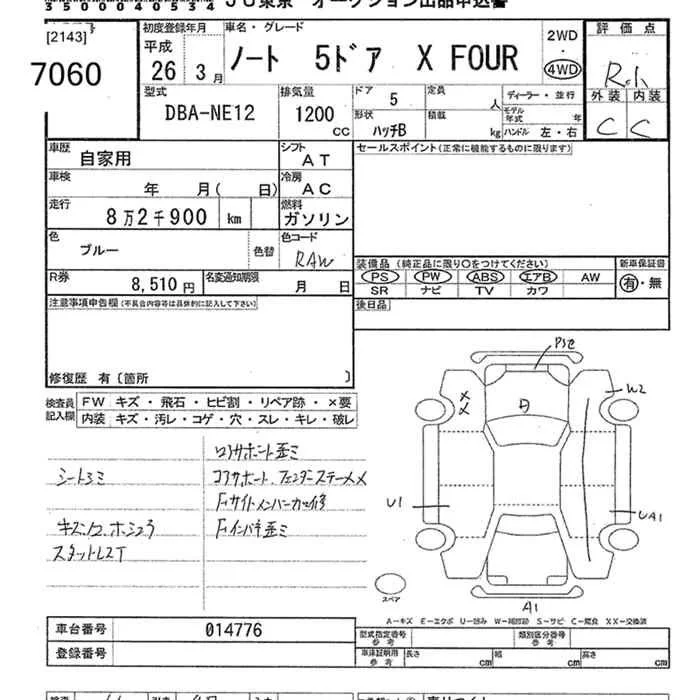 35000040534 JU東京 オークション出品申込書
[2143]
7060
初度登録年月
平成
26 3月
車名・グレード
ノート 5ドア X FOUR
2WD
・
4WD
評価点
外装 内装
C C
型式
DBA-NE12
排気量
1200
CC
ドア
5
定員
人
形状
ハッチB
積載
kg
ディーラー・並行
モデル年式
年
ハンドル 左・右
車歴
自家用
シフト
AT
車検
年 月( 日)
冷房
AC
走行
8万2千900 km
燃料
ガソリン
色
ブルー
色替
色コード
RAW
R券
8,510円
名変通知期限
月 日
セールスポイント(正常に機能するものに限ります)
装備品(純正品に限り○をつけてください)
PS PW ABS エアB AW
SR ナビ TV カワ
新車保証書
有・無
後日品
注意事項申告欄(不具合内容等は具体的に記入して下さい)
修復歴 有〔箇所 〕
検査員記入欄
FW キズ・飛石・ヒビ割・リペア跡・×要
内装 キズ・汚レ・コゲ・穴・スレ・キレ・破レ
コアサポート、フェンダーステー××
シートシミ
Fサイドメンバー
Fインパネ歪ミ
W2
X
X
U1
UA1
A1
スペア
A−キズ E−エクボ U−凹み W−補修跡 S−サビ C−腐食 XX−交換済
車台番号
014776
登録番号
型式指定番号
参考
類別区分番号
参考
車庫証明用
参考
長さ
cm
幅
cm
高さ
cm